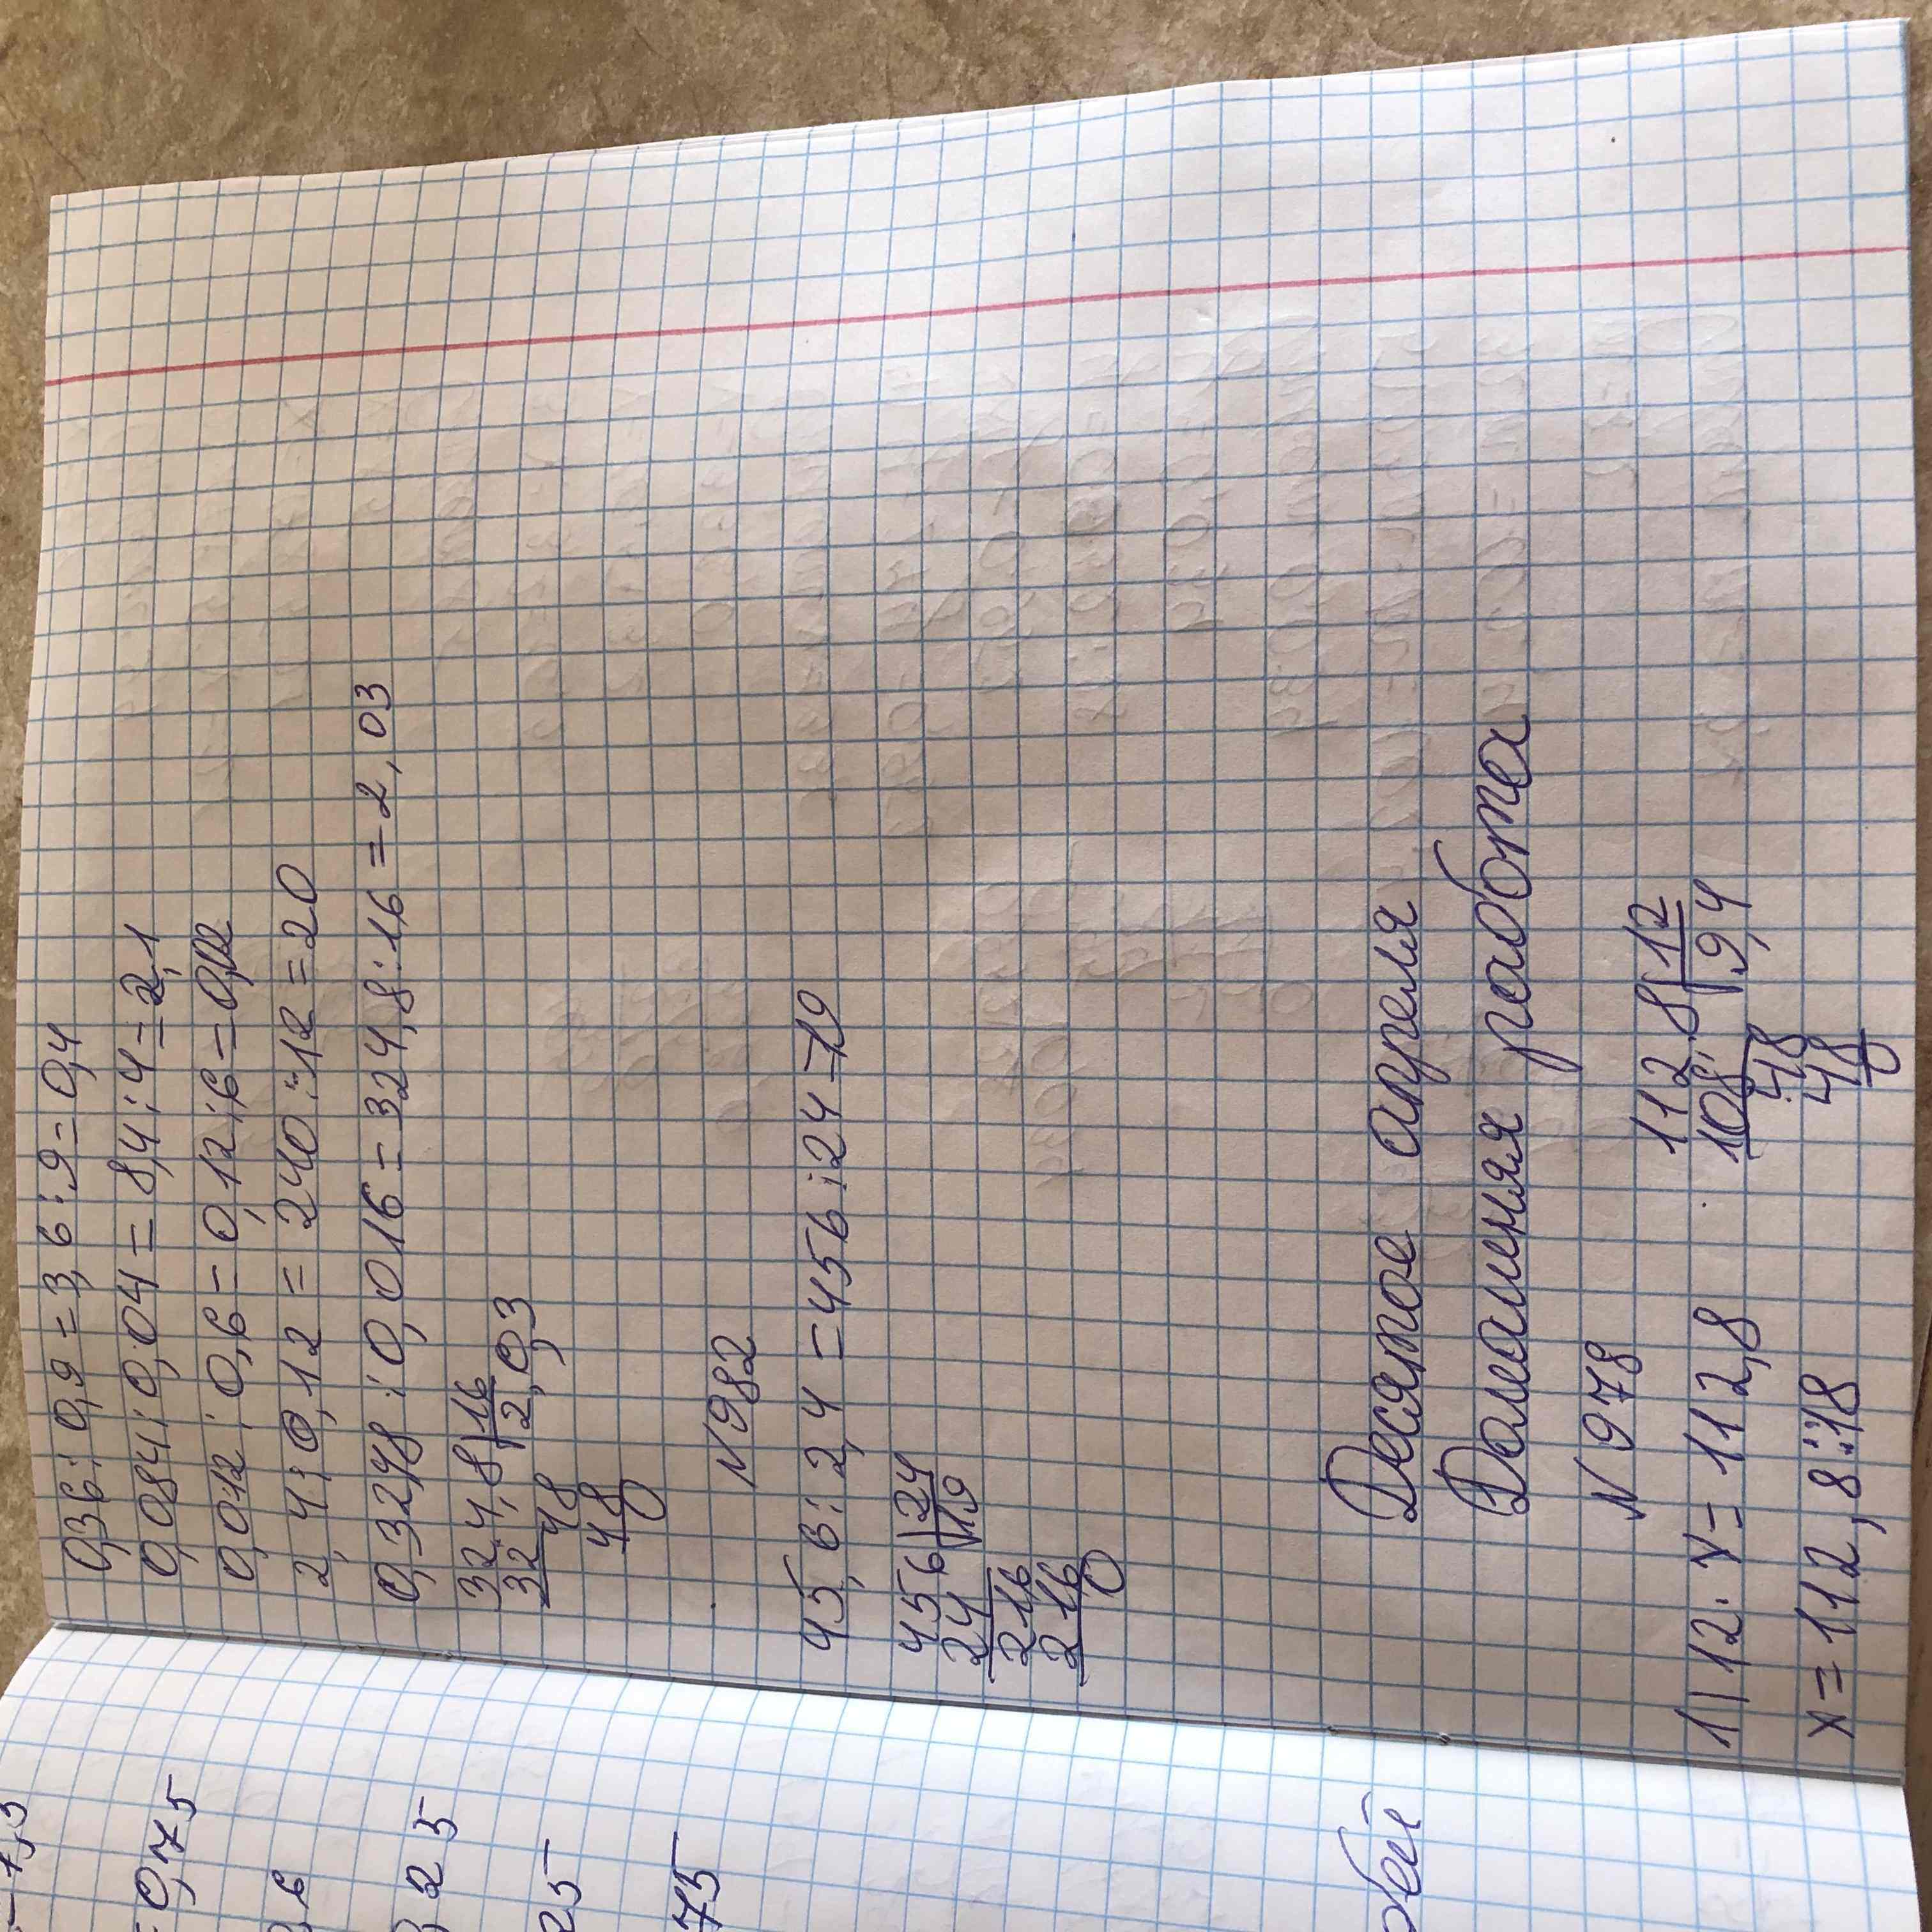 0,36 : 0,9 = 3,6 : 9 = 0,4
0,084 : 0,04 = 8,4 : 4 = 2,1
0,012 : 0,6 = 0,12 : 6 = 0,02
2,4 : 0,12 = 240 : 12 = 20
0,3248 : 0,016 = 324,8 : 16 = 2,03
324,8 | 16
32 2,0,3
48
48
0
N 982
45,6 : 2,4 = 456 : 24 = 19
456 | 24
24 19
216
216
0
Десятое апреля
Домашняя работа
N 978
1) 12 · x = 112,8
112,8 | 12
108 9,4
48
48
0
x = 112,8 : 18
7,5
= 0,75
6
25
25
75